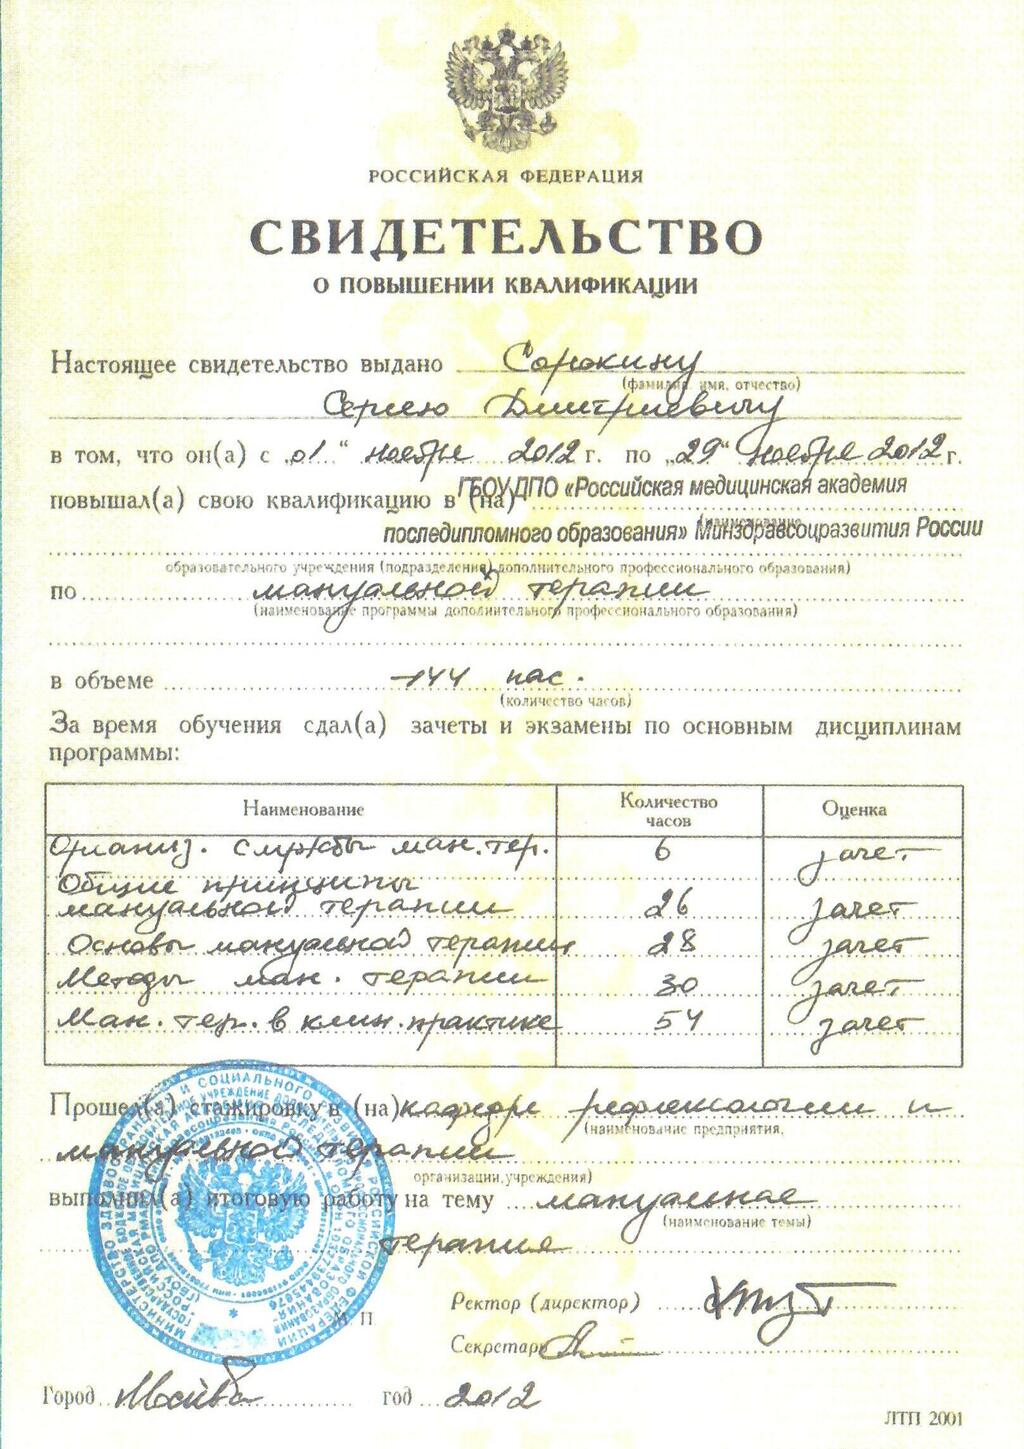 РОССИЙСКАЯ ФЕДЕРАЦИЯ
СВИДЕТЕЛЬСТВО
О ПОВЫШЕНИИ КВАЛИФИКАЦИИ
Настоящее свидетельство выдано Сорокину
(фамилия, имя, отчество)
Сергею Дмитриевичу
в том, что он(а) с „01“ ноября 2012 г. по „29“ ноября 2012 г.
повышал(а) свою квалификацию в (на) ГБОУ ДПО «Российская медицинская академия
последипломного образования» Минздравсоцразвития России
(наименование
образовательного учреждения (подразделения) дополнительного профессионального образования)
по мануальной терапии
(наименование программы дополнительного профессионального образования)
в объеме 144 час.
(количество часов)
За время обучения сдал(а) зачеты и экзамены по основным дисциплинам
программы:
Наименование Количество часов Оценка
Организ. службы ман. тер. 6 зачет
Общие принципы
мануальной терапии 26 зачет
Основы мануальной терапии 28 зачет
Методы ман. терапии 30 зачет
Ман. тер. в клин. практике 54 зачет
Прошел(а) стажировку в (на) кафедре рефлексологии и
(наименование предприятия,
мануальной терапии
организации, учреждения)
выполнил(а) итоговую работу на тему мануальная
(наименование темы)
терапия
Ректор (директор)
М П
Секретарь
Город Москва год 2012
ЛТП 2001